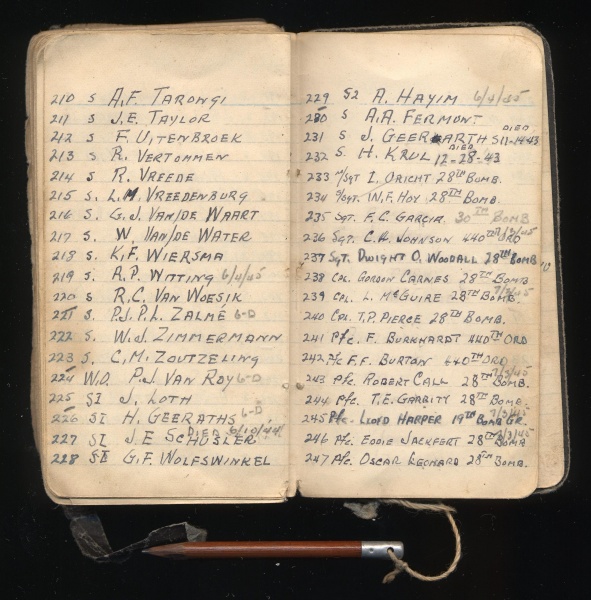 210 S A.F. TARONGI
211 S J.E. TAYLOR
212 S F. UITENBROEK
213 S R. VERTOMMEN
214 S R. VREEDE
215 S. L.M. VREEDENBURG
216 S. G.J. VAN/DE WAART
217 S. W. VAN/DE WATER
218 S. K.F. WIERSMA
219 S. A.P. WITTING 6/4/45
220 S R.C. VAN WOESIK
221 S. P.J.P.L. ZALME 6-D
222 S. W.J. ZIMMERMANN
223 S. C.M. ZOUTZELING
224 W.O. P.J. VAN ROY 6-D
225 SI J. LOTH
226 SI H. GEERATHS 6-D
227 SI J.E SCHÜSLER DIED 6/10/44
228 SI G.F. WOLFSWINKEL
229 S2 A. HAYIM 6/4/45
230 S A.A. FERMONT
231 S J. GEERARTH S DIED 11-14-43
232 S H. KRUL DIED 12-28-43
233 M/SGT I. ORICHT 28TH BOMB.
234 S/SGT. W.F. HOY 28TH BOMB.
235 SGT. F.C. GARCIA 30TH BOMB
236 SGT. C.H. JOHNSON 440TH ORD
237 SGT. DWIGHT O. WOODALL 28TH BOMB
238 CPL. GORDON CARNES 28TH BOMB
239 CPL. L. McGUIRE 28TH BOMB.
240 CPL. T.P. PIERCE 28TH BOMB.
241 Pfc. F. BURKHARDT 440TH ORD
242 Pfc F.F. BURTON 440TH ORD
243 Pfc. ROBERT CALL 28TH BOMB.
244 Pfc. T.E. GARRITY 28TH BOMB.
245 Pfc. LLOYD HARPER 19TH BOMB GR.
246 Pfc. EDDIE JACKFERT 28TH BOMB
247 Pfc. OSCAR LEONARD 28TH BOMB.